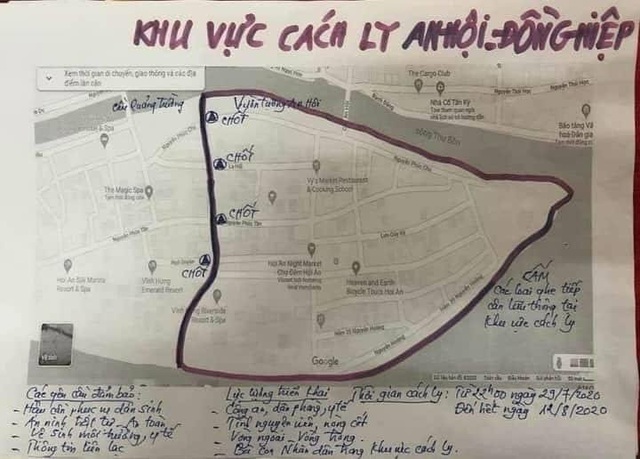 KHU VỰC CÁCH LY AN HỘI - ĐỒNG HIỆP
Xem thời gian di chuyển, giao thông và các địa
điểm lân cận
The Cargo Club
Nguyễn Thái Học
Nhà Cổ Tấn Ký
Bạch Đằng
cầu Quảng Trường
Vườn tượng An Hội
CHỐT
sông Thu Bồn
Nguyễn Phúc Chu
Nguyễn Phúc Chu
CHỐT
La Hối
Vy's Market Restaurant
& Cooking School
The Magic Spa
CHỐT
Nguyễn Phúc Tần
Nguyễn Phúc Tần
Lưu Quý Kỳ
Ngô Quyền
CHỐT
Hoi An Silk Marina
Resort & Spa
Vinh Hung
Emerald Resort
Hoi An Night Market
Chợ Đêm Hội An
Heaven and Earth
Bicycle Tours Hoi An
Vinh Hung Riverside
Resort & Spa
Nguyễn Hoàng
CẤM
Các loại ghe tiếp
cận lưu thông tại
khu vực cách ly
Google
Các yêu cầu đảm bảo:
- Hậu cần phục vụ dân sinh
- An ninh trật tự - An toàn
- Vệ sinh môi trường, y tế
- Thông tin liên lạc
Lực lượng triển khai
- Công an, dân phòng, y tế
- Tình nguyện viên, nòng cốt
- Vòng ngoài - Vòng trong
- Bà con Nhân dân trong khu vực cách ly.
Thời gian cách ly: Từ 22h00 ngày 29/7/2020
Đến hết ngày 12/8/2020